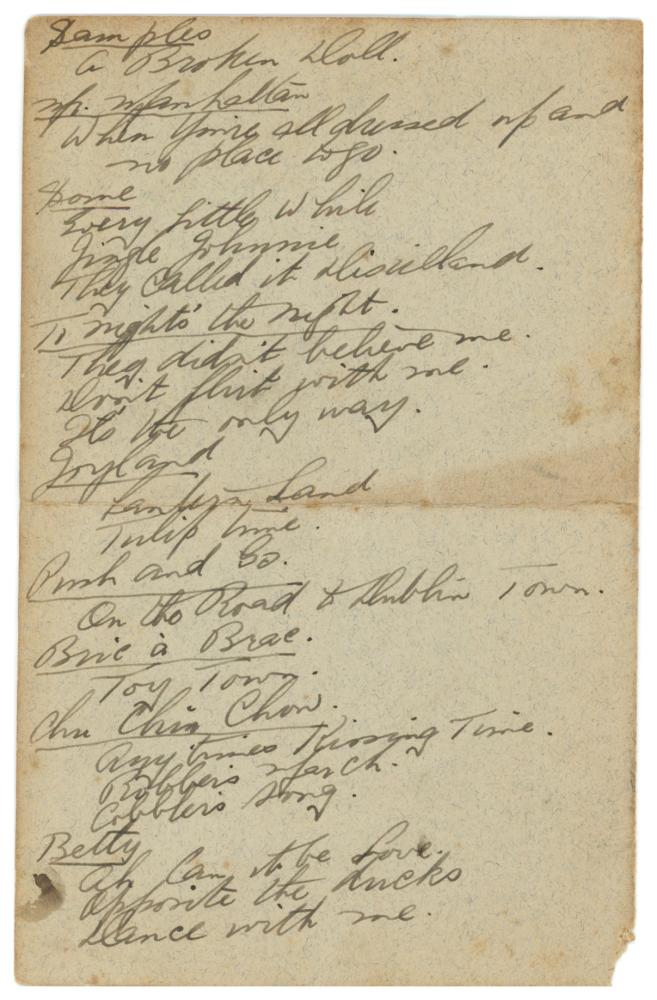 Samples
A Broken Doll.
Mr. Manhattan
When you're all dressed up and
no place to go.
Some
Every little while
Jingle Johnnie
They called it Dixieland.
To night's the night.
They didn't believe me.
Don't flirt with me.
It's the only way.
Joyland
Land
Tulip time.
Push and Go.
On the Road to Dublin Town.
Bric à Brac.
Toy Town.
Chu Chin Chow.
Any times Kissing Time.
Robbers March.
Cobblers Song.
Betty
Ah Can it be Love.
Opposite the Ducks
Dance with me.